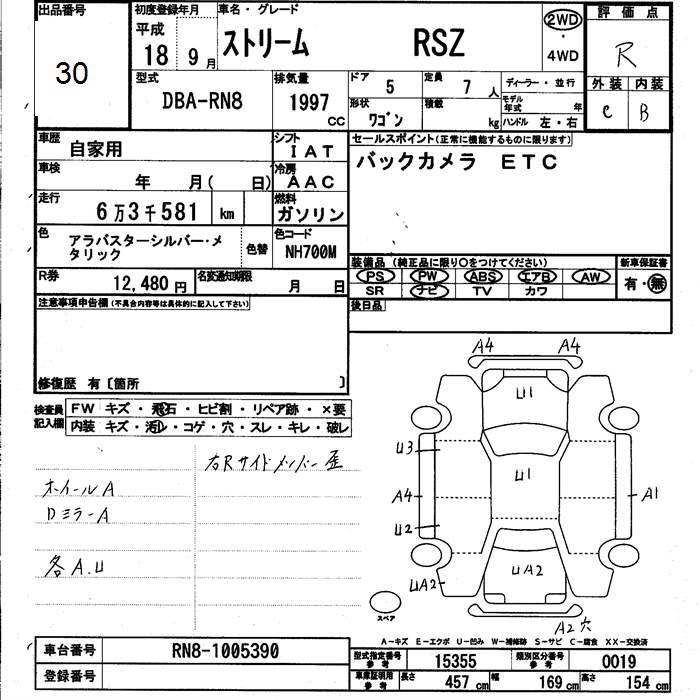 出品番号 初度登録年月 車名・グレード 評価点
30 平成 18 9月 ストリーム RSZ 2WD・4WD R
型式 DBA-RN8 排気量 1997 CC
ドア 5 定員 7人 ディーラー・並行 外装 内装
形状 ワゴン 積載 kg モデル年式 年 ハンドル 左・右 C B
車歴 自家用 シフト IAT
セールスポイント(正常に機能するものに限ります)
バックカメラ ETC
車検 年 月( 日) 冷房 AAC
走行 6万3千581 km 燃料 ガソリン
色 アラバスターシルバー・メタリック 色替 色コード NH700M
装備品 (純正品に限り○をつけてください) 新車保証書
PS PW ABS エアB AW 有・無
SR ナビ TV カワ
R券 12,480円 名変通知期限 月 日
後日品
注意事項申告欄(不具合内容等は具体的に記入して下さい)
修復歴 有〔箇所 〕
検査員記入欄
FW キズ・飛石・ヒビ割・リペア跡・×要
内装 キズ・汚れ・コゲ・穴・スレ・キレ・破レ
右Rサイドメンバー歪
ホイールA
DミラーA
各A.U
A4 A4
U1
U3
U1
A4 A1
U2
UA2 UA2
スペア
A2穴
A-キズ E-エクボ U-凹み W-補修跡 S-サビ C-腐食 XX-交換済
車台番号 RN8-1005390
登録番号
型式指定番号 参考 15355 類別区分番号 参考 0019
車庫証明用 参考 長さ 457cm 幅 169cm 高さ 154cm